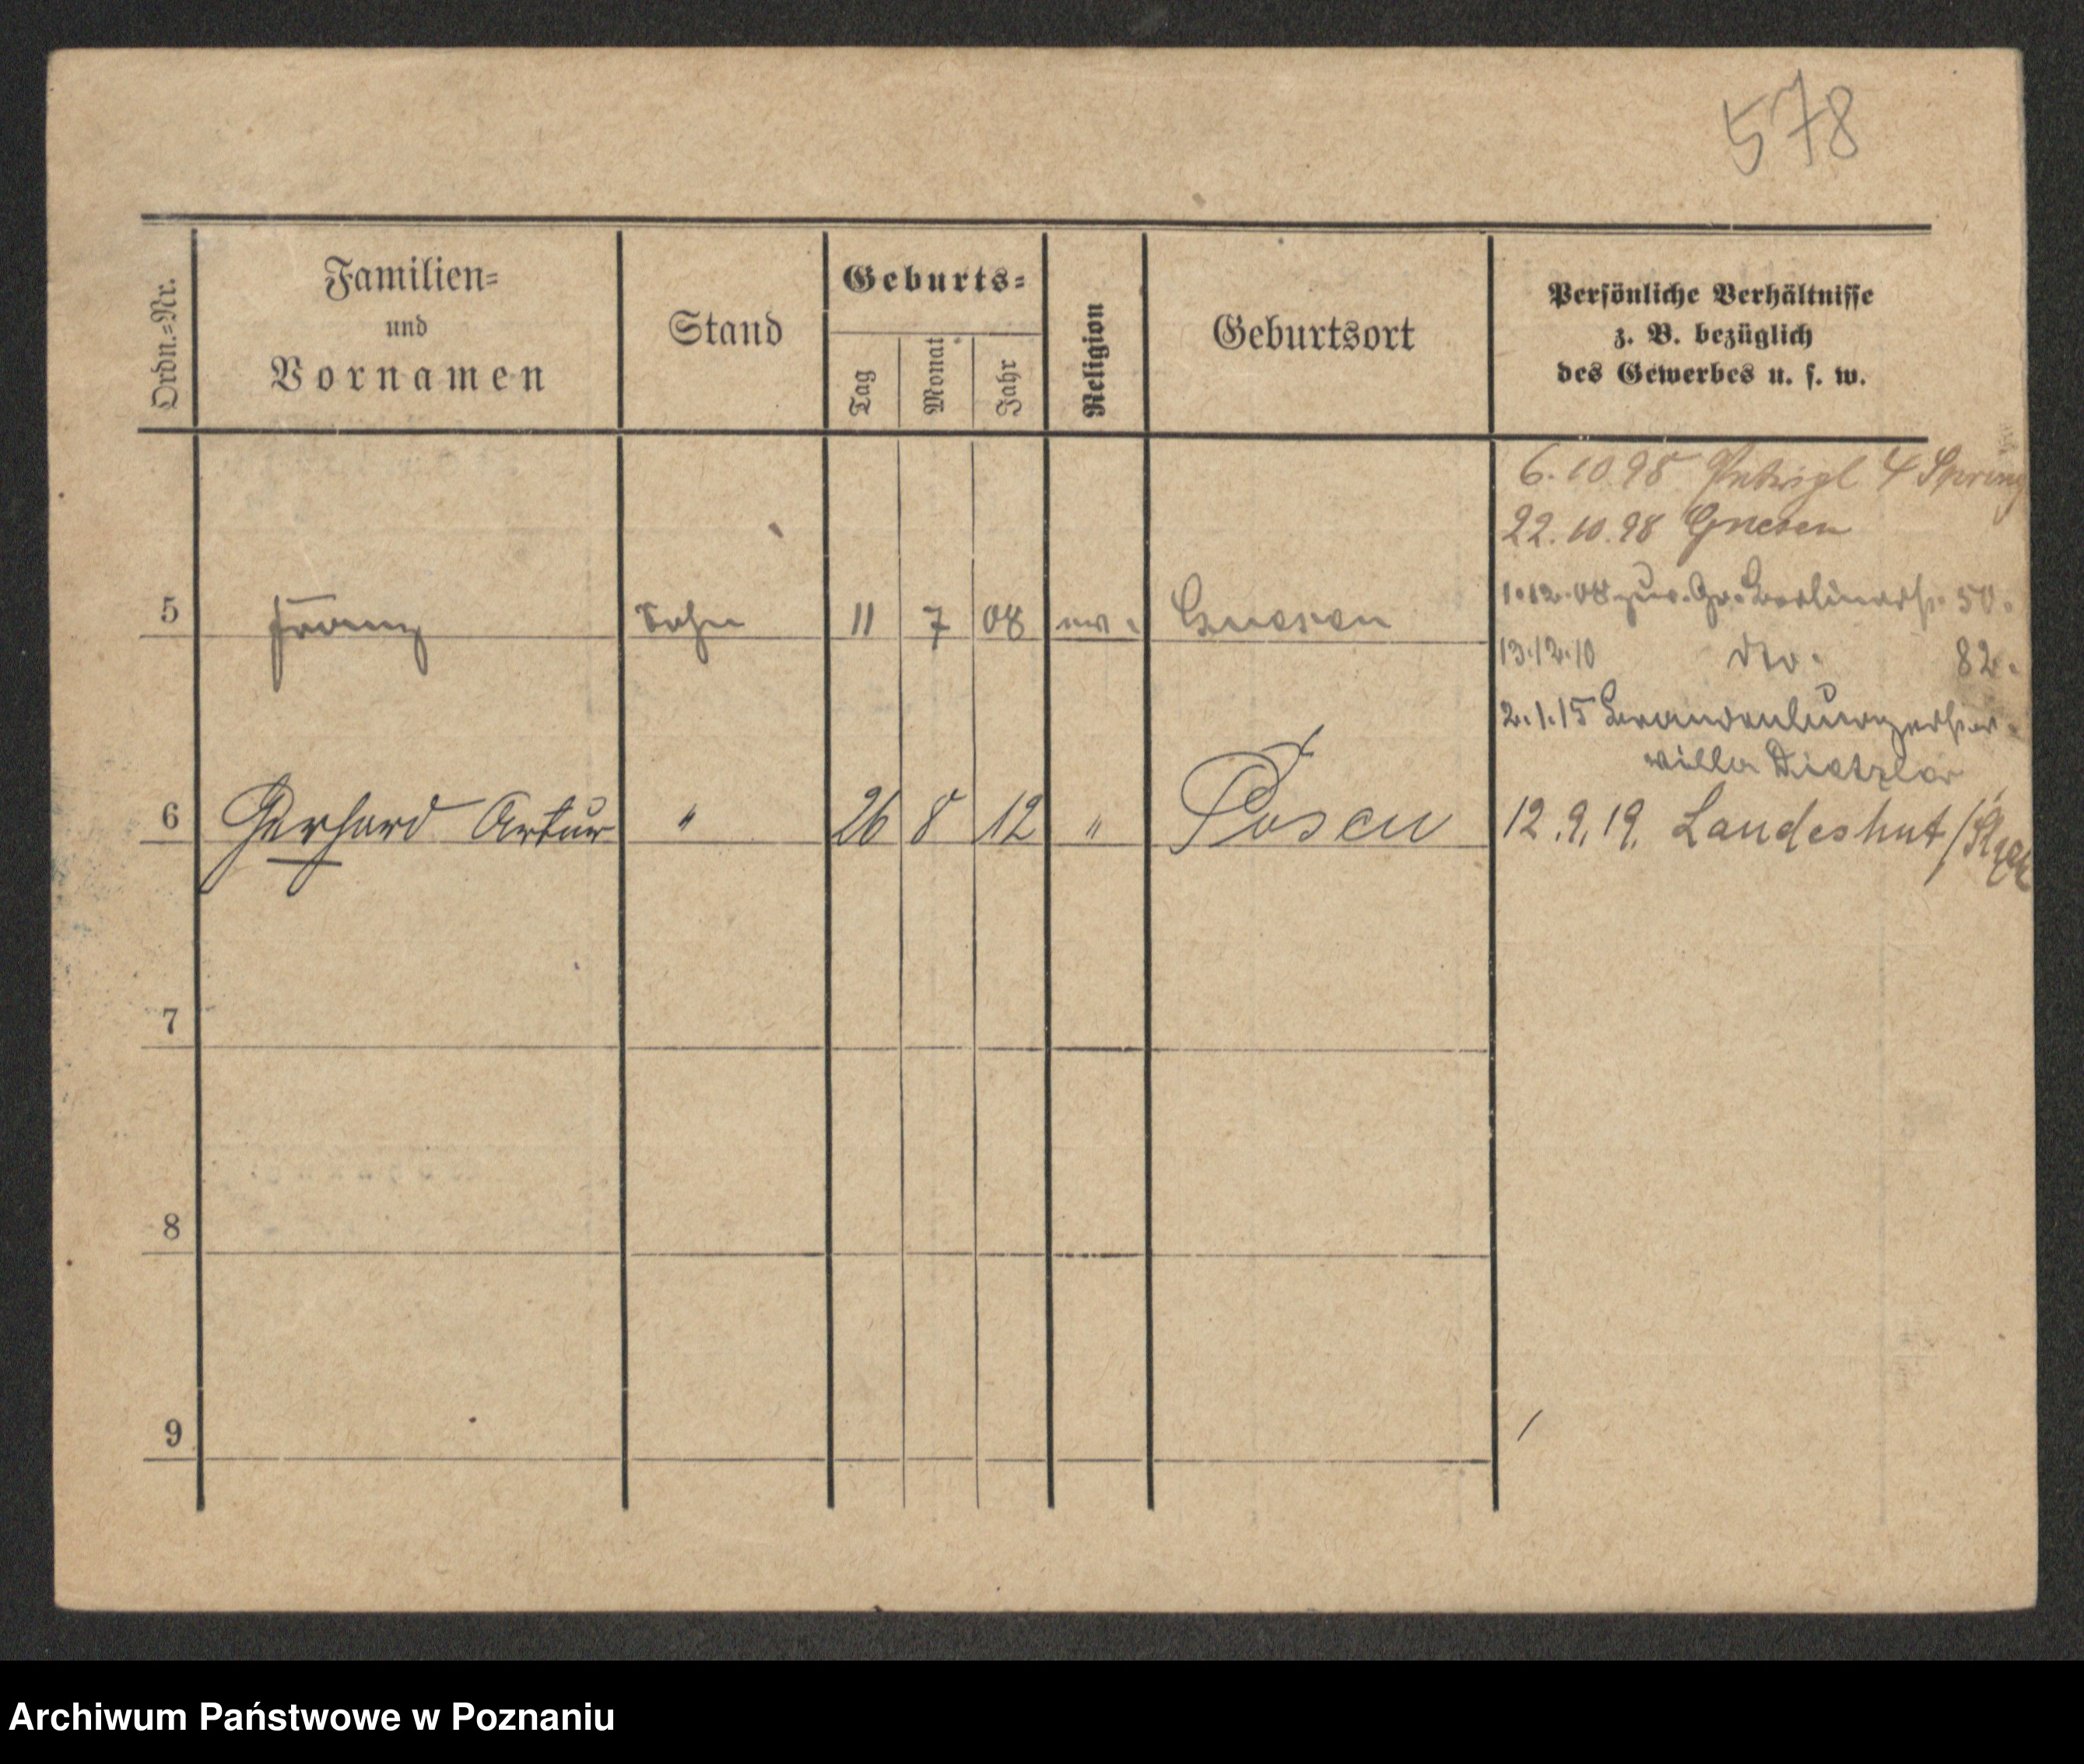 578
Ordn.=Nr.
Familien=
und
Vornamen
Stand
Geburts=
Tag
Monat
Jahr
Religion
Geburtsort
Persönliche Verhältnisse
z. B. bezüglich
des Gewerbes u. s. w.
6.10.98 4
22.10.98 Gnesen
1.12.08 zur. Gr. Berlinerstr. 50.
5 Franz Sohn 11 7 08 ev. Gnesen
13.12.10 dto. 82.
2.1.15 Brandenburgerstr.
Villa
6 Gerhard Artur " 26 8 12 " Posen 12.9.19. Landeshut /
7
8
9
Archiwum Państwowe w Poznaniu